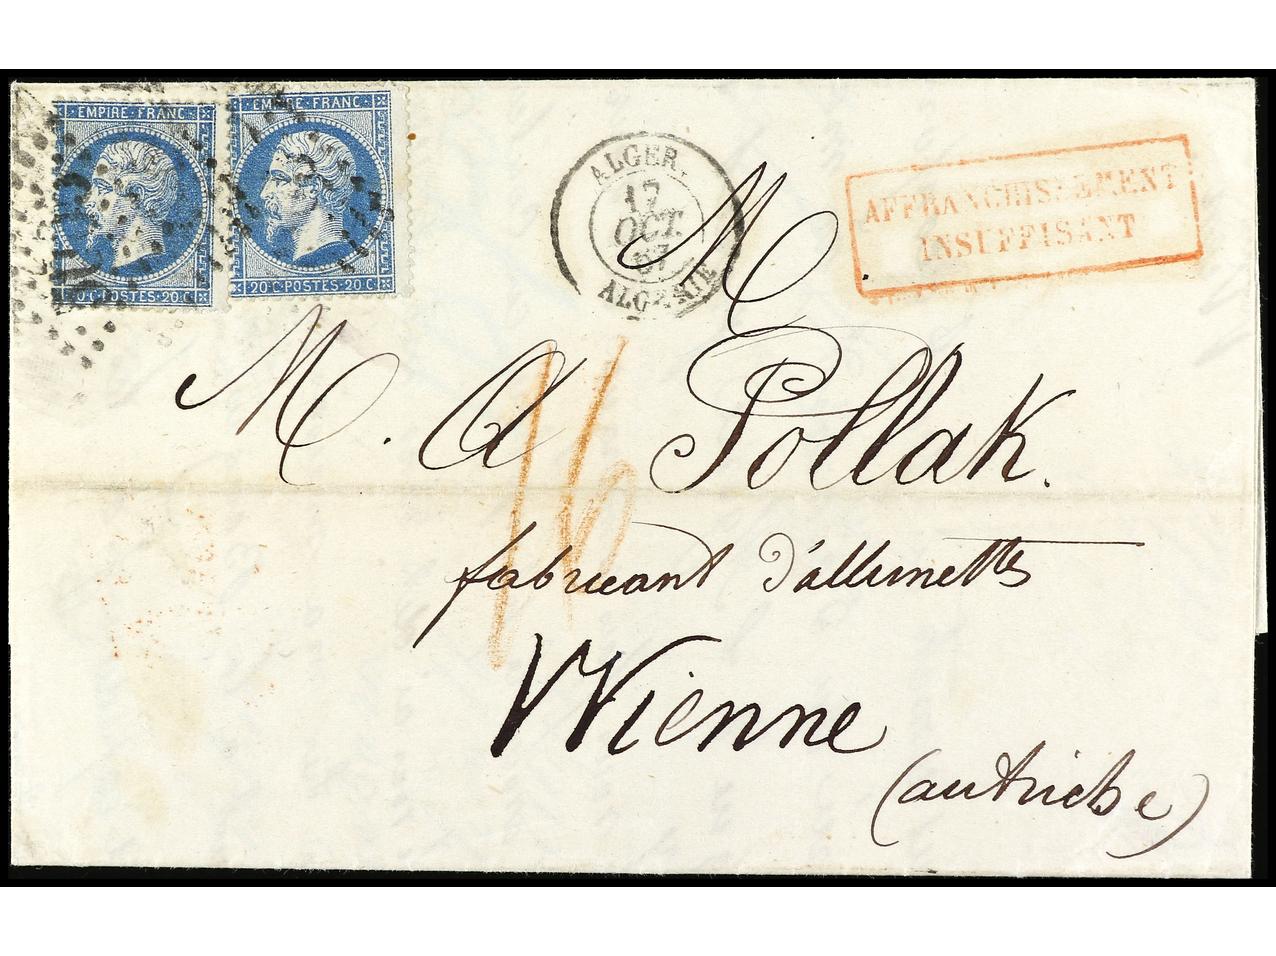 EMPIRE FRANC
20 C POSTES 20 C
EMPIRE FRANC
20 C POSTES 20 C
ALGER.
17
OCT.
67
ALGERIE
AFFRANCHISSEMENT
INSUFFISANT
M
M. A Pollak.
16
fabricant d'allumettes
Wienne
(autriche)